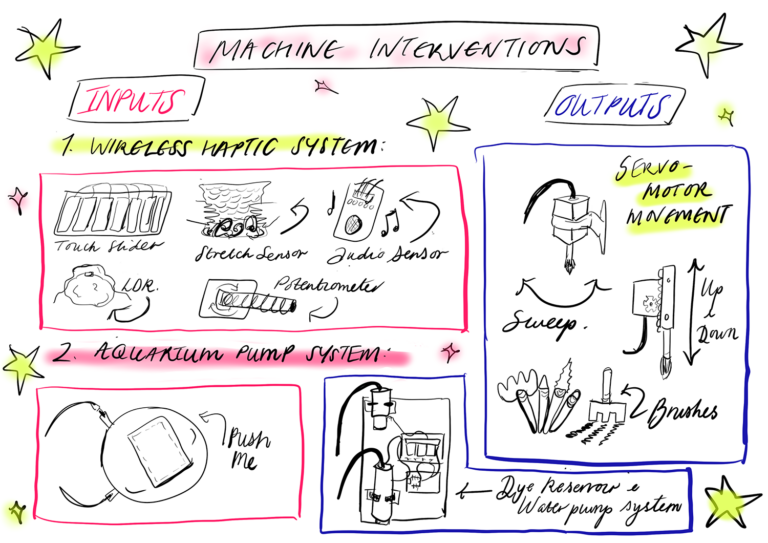 MACHINE INTERVENTIONS
INPUTS
OUTPUTS
1. WIRELESS HAPTIC SYSTEM:
Touch Slider
Stretch Sensor
Audio Sensor
LDR.
Potentiometer
SERVO-
MOTOR
MOVEMENT
Sweep.
Up
&
Down
Brushes
2. AQUARIUM PUMP SYSTEM:
Push
Me
Dye Reservoir &
Water pump system